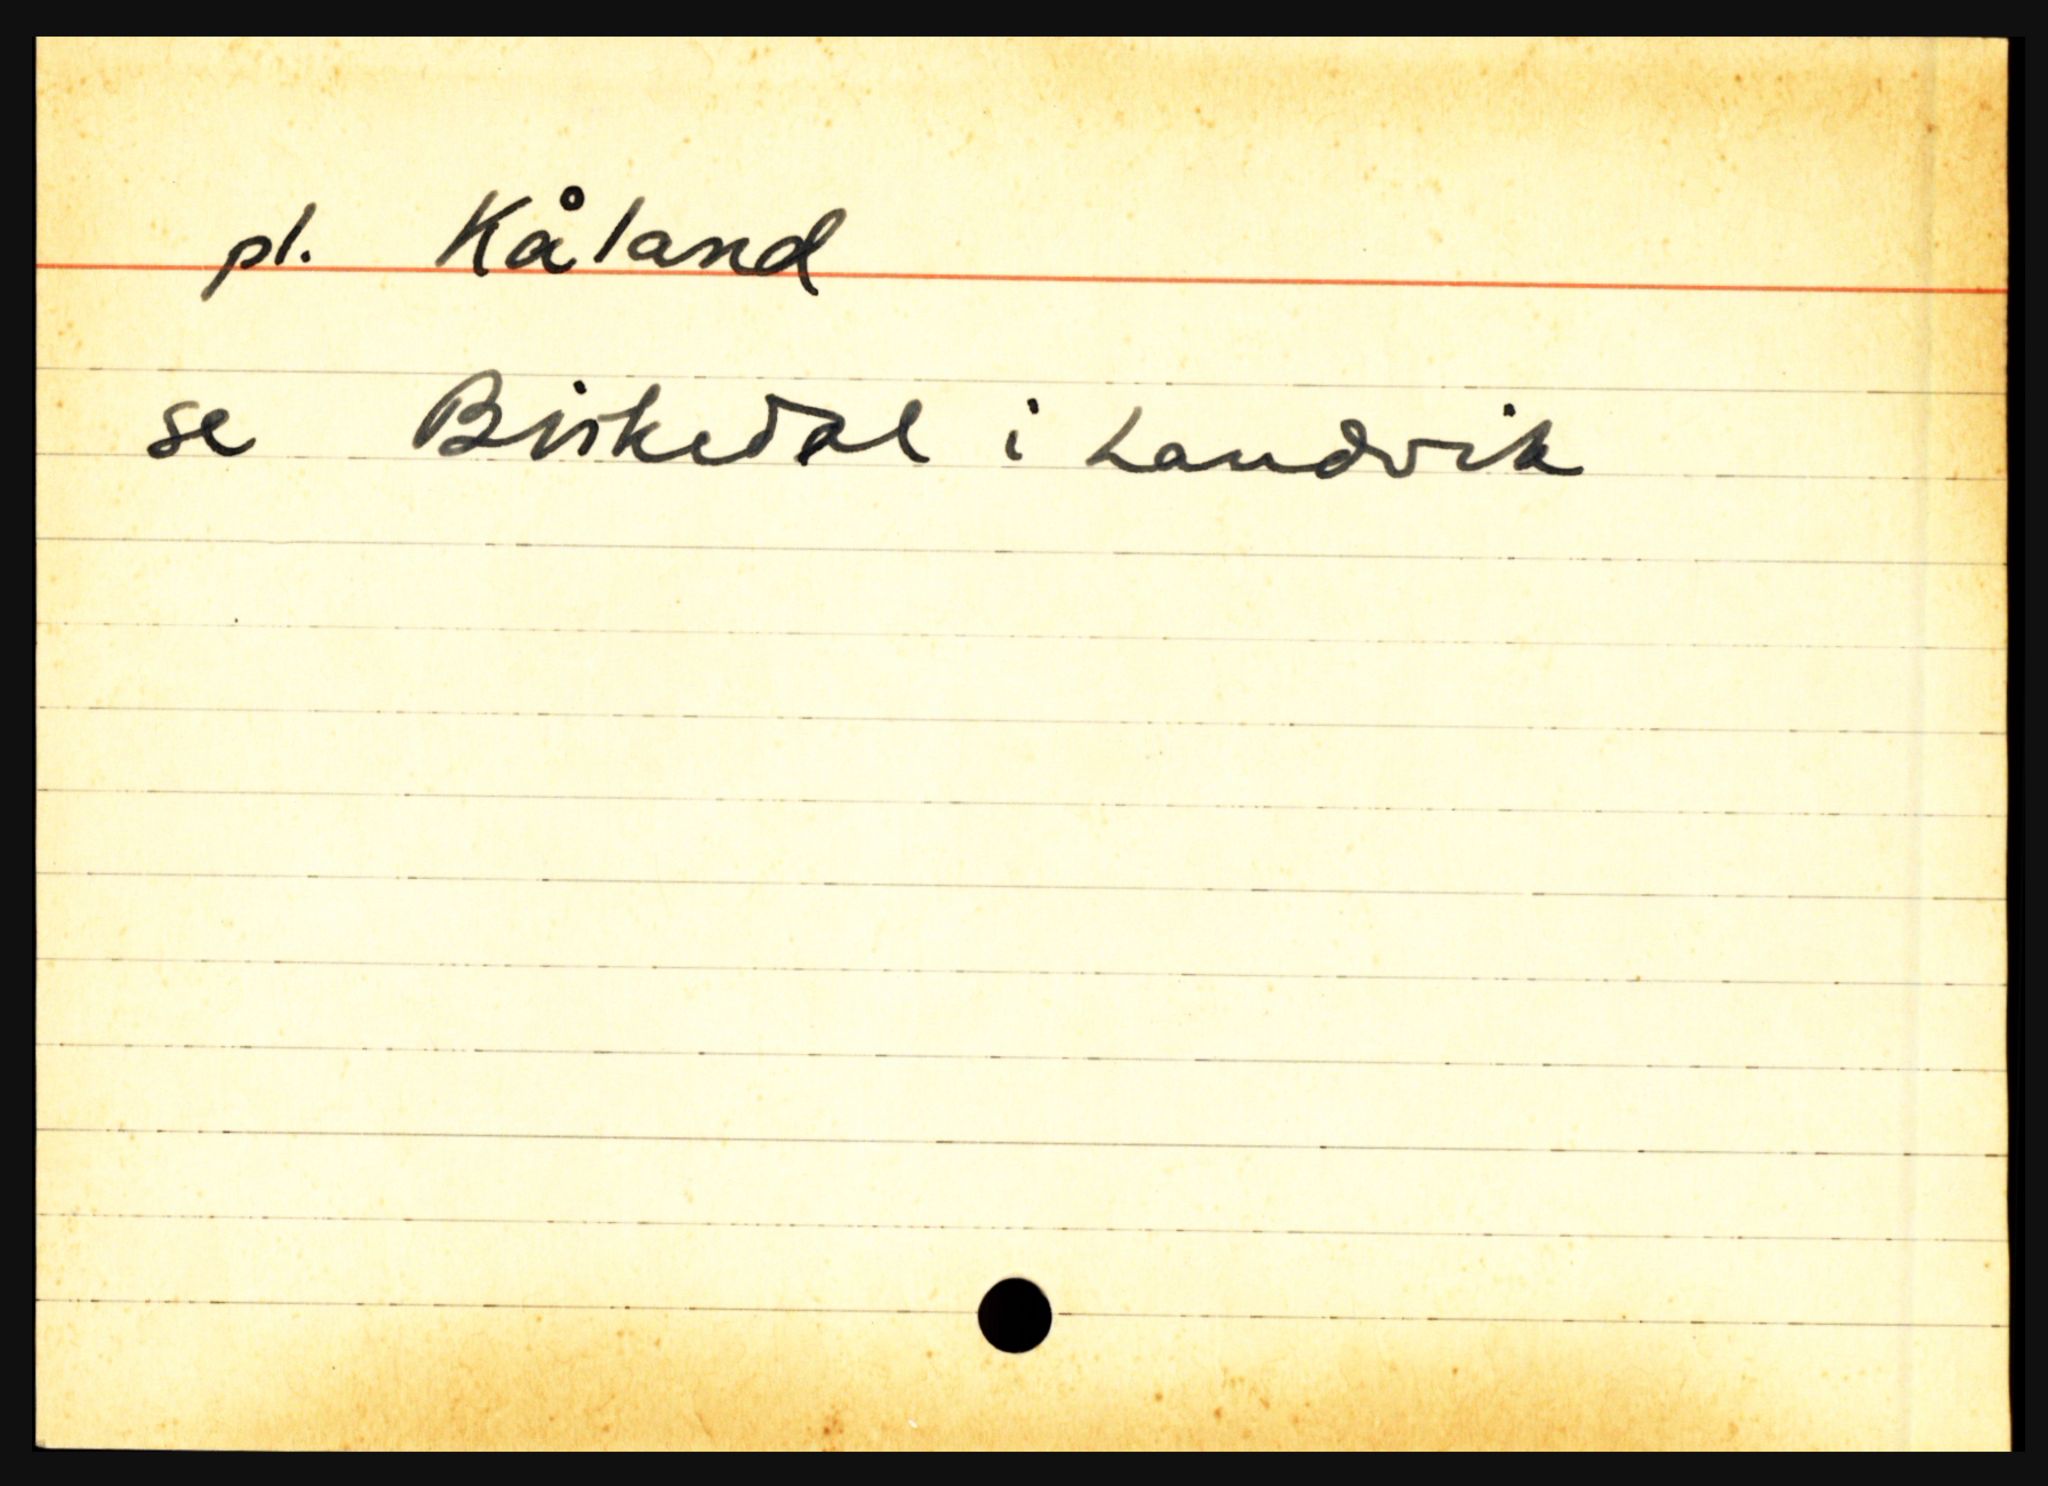 pl. Kåland
se Birkedal i Landvik